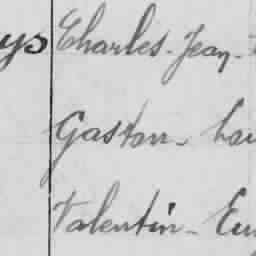 ys Charles-Jean-
Gaston-Lou
Valentin-Eug